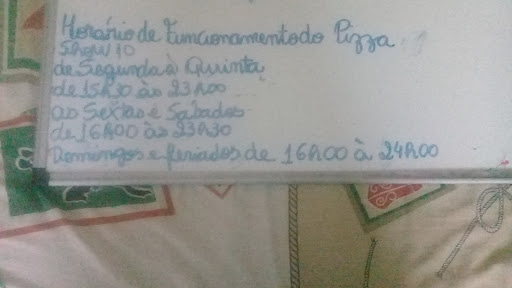 Horário de Funcionamento do Pizza
Show 10
de Segunda à Quinta
de 15h30 às 23h00
as Sextas e Sábados
de 16h00 às 23h30
Domingos e feriados de 16h00 à 24h00